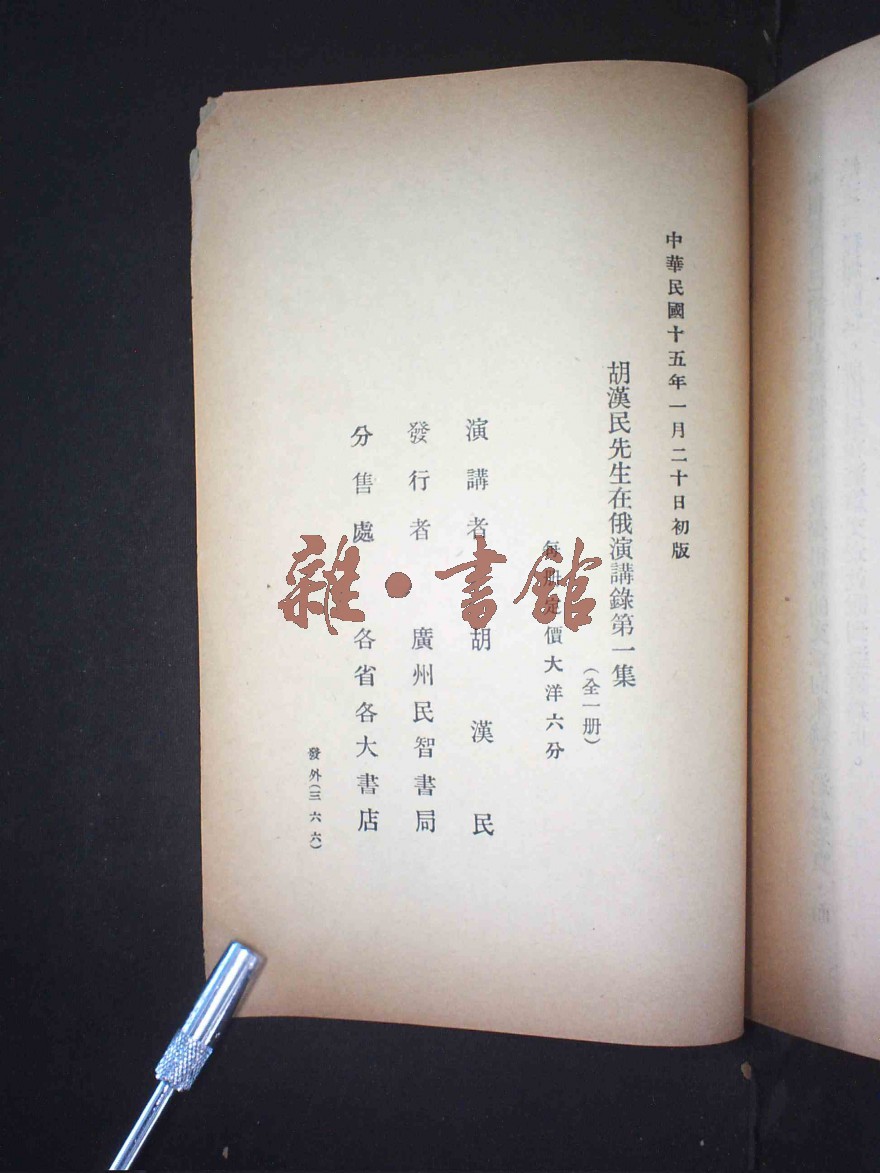 中華民國十五年一月二十日初版
胡漢民先生在俄演講錄第一集
(全一册)
每册定價大洋六分
演講者 胡漢民
發行者 廣州民智書局
分售處 各省各大書店
發外(三六六)
雜·書館